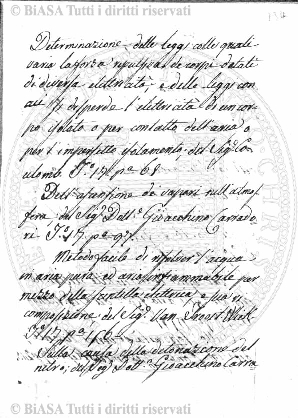 © BiASA Tutti i diritti riservati
Determinazione delle leggi colle quali
varia la forza repulsiva de corpi dotati
di diversa elettricità, e delle leggi con
cui si disperde l'elettricità di un cor-
po isolato o per contatto dell'aria o
per imperfetto isolamento del Sig. Co-
ulomb T. 17. p. 68
Dell'ascensione de vapori nell'atmos
fera del Sig. Dott. Gioacchino Carrado
ri T. 17. p. 97.
Metodo facile di risolver l'acqua
in aria pura ed aria infiammabile per
mezzo della scintilla elettrica, e
composizione del Sig. Van
T. 17 p.
Sulla causa della detonazione del
nitro, del Sig. Dott. Gioacchino Carra
© BiASA Tutti i diritti riservati